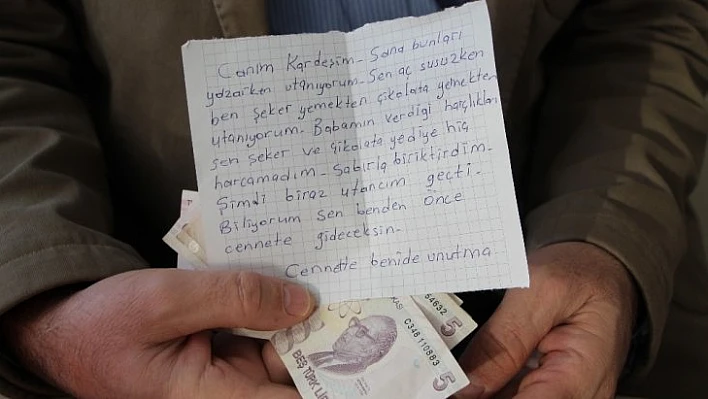 Canım Kardeşim - Sana bunları
yazarken utanıyorum - Sen aç susuzken
ben şeker yemekten çikolata yemekten
utanıyorum - Babamın verdiği harçlıkları
sen şeker ve çikolata yediye hiç
harcamadım - Sabırla biriktirdim -
Şimdi biraz utancım geçti -
Biliyorum sen benden önce
cennete gideceksin -
Cennette benide unutma
64632
5
C348110883
5
BEŞ TÜRK LİR